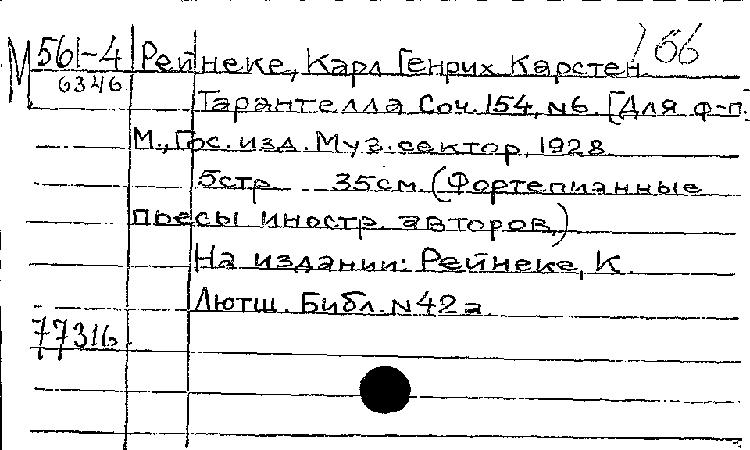 166
М 561-4 Рейнеке, Карл Генрих Карстен
6346
Тарантелла Соч. 154, N6. [Для ф-п.]
М., Гос. изд. Муз. сектор, 1928
5стр 35см. (Фортепианные
пьесы иностр. авторов.)
На издании: Рейнеке, К.
Лютш. Библ. N42а
77316